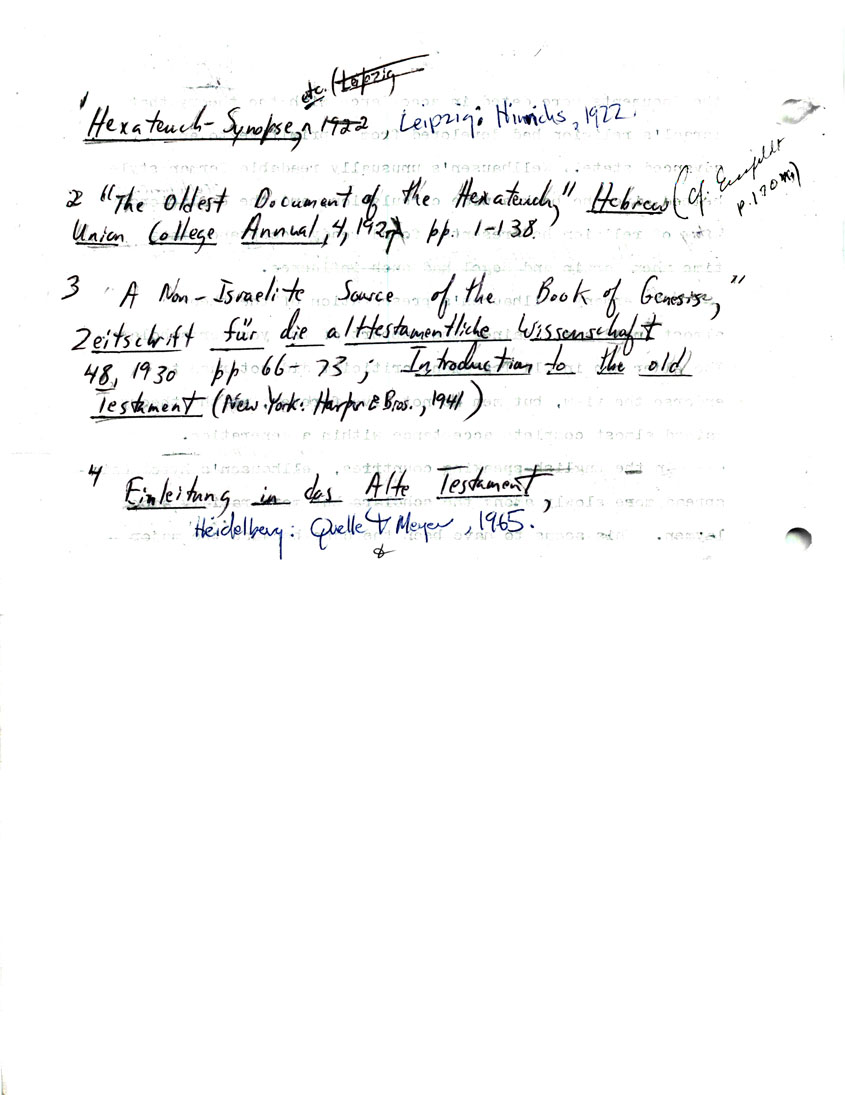 etc. (Leipzig
1 Hexateuch-Synopse, 1922, Leipzig: Hinrichs, 1922.
2 "The Oldest Document of the Hexateuch," Hebrew (cf. Eissfeldt
p. 170
Union College Annual, 4, 1927 pp. 1-138.
3 "A Non-Israelite Source of the Book of Genesis,"
Zeitschrift für die alttestamentliche Wissenschaft
48, 1930 pp 66-73; Introduction to the old
Testament (New York: Harper & Bros., 1941)
4 Einleitung in das Alte Testament,
Heidelberg: Quelle & Meyer, 1965.
&